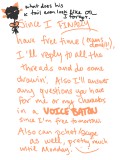 what does his
& tail even look like on
I forget.
Since I FINALLY
have free time (Mams done!!),
I'll reply to all the
threads and do some
drawin'. Also I'll answer
any questions ya have
for me or my charas
in a VOICE BATON
since I'm free tomorrow
Also can gchat/gauge
as well, pretty much
until Monday.